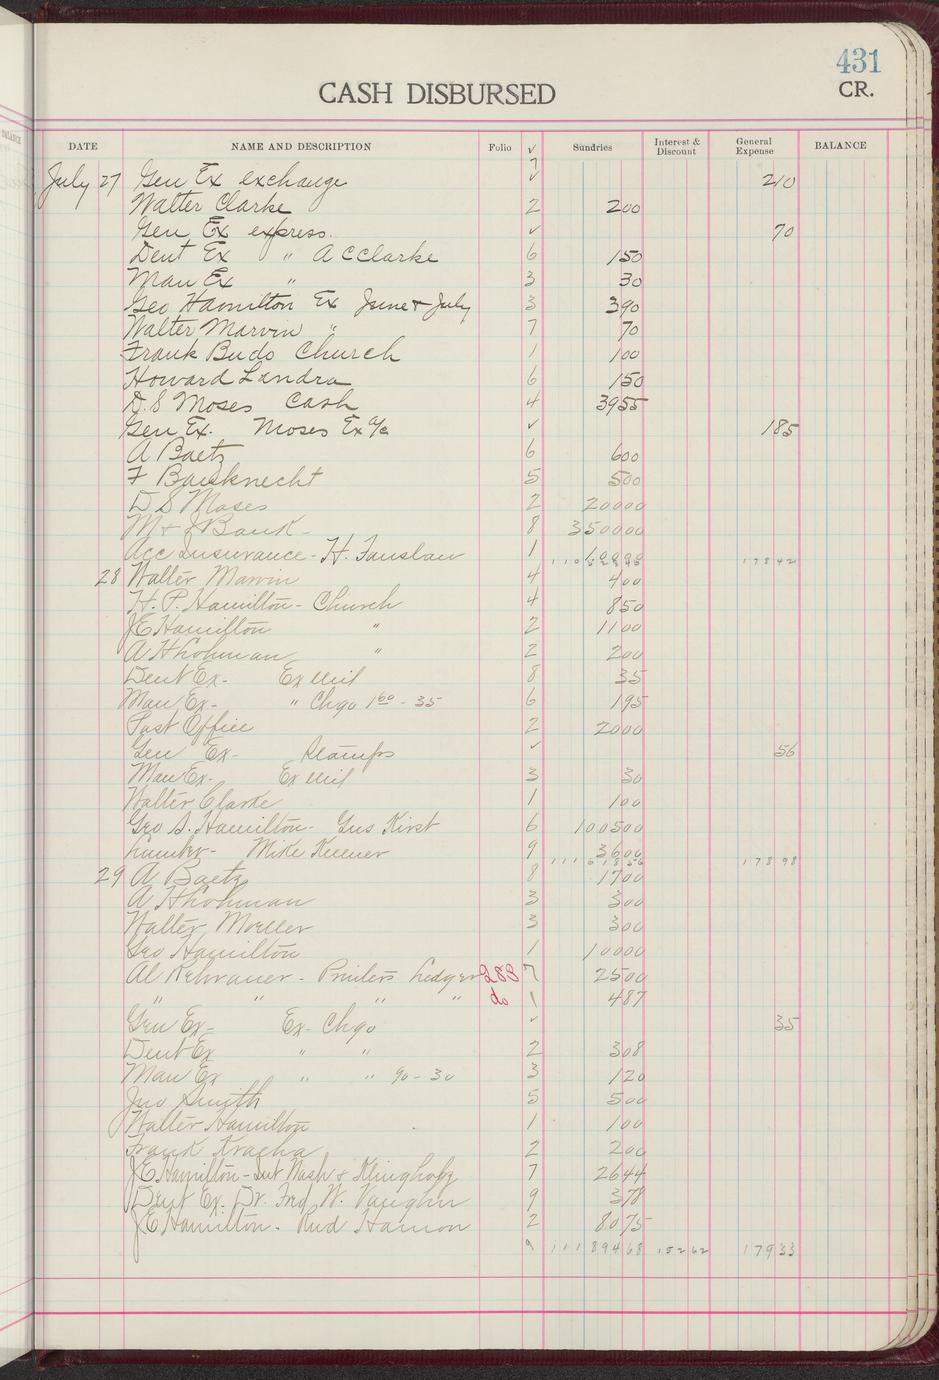 431
CR.
CASH DISBURSED
DATE NAME AND DESCRIPTION Folio ✓ Sundries Interest & Discount General Expense BALANCE
7
July 27 Gen Ex exchange ✓ 210
Walter Clarke 2 200
Gen Ex express. ✓ 70
Dent Ex " A C Clarke 6 150
Man Ex " 3 30
Geo Hamilton Ex June & July 3 390
Walter Marvin " 7 70
Frank Budo Church 1 100
Howard Landra 6 150
D. S Moses Cash 4 3955
Gen Ex. Moses Ex a/c ✓ 185
A Baetz 6 600
F Bauknecht 5 500
D S Moses 2 20000
M & J Bank - 8 350000
Acc Insurance - H. Fanslau 1
17842
28 Walter Marvin 4 400
H. P. Hamilton - Church 4 850
J E Hamilton " 2 1100
A H Lohman " 2 200
Dent Ex - Ex Mil 8 35
Man Ex - " Chgo 1 60 - 35 6 195
Post Office 2 2000
Gen Ex - Stamps ✓ 56
Man Ex - Ex Mil 3 30
Walter Clarke 1 100
Geo S. Hamilton - Gus Kirst 6 100500
Lumber - Mike Keener 9 3600
17898
29 A Baetz 8 1700
A H Lohman 3 300
Walter Moeller 3 300
Geo Hamilton 1 10000
Al Rehrauer - Printers Ledger 288 7 2500
" " " " do 1 487
Gen Ex - Ex - Chgo ✓ 35
Dent Ex " " 2 308
Man Ex " " 90 - 30 3 120
Jno Smith 5 500
Walter Hamilton 1 100
Frank Kracha 2 200
J E Hamilton - Int Nash & Klingholz 7 2644
Dent Ex. Dr. Fred W. Vaughn 9 378
J E Hamilton - Rud Hamon 2 8075
9 11189468 15262 17933